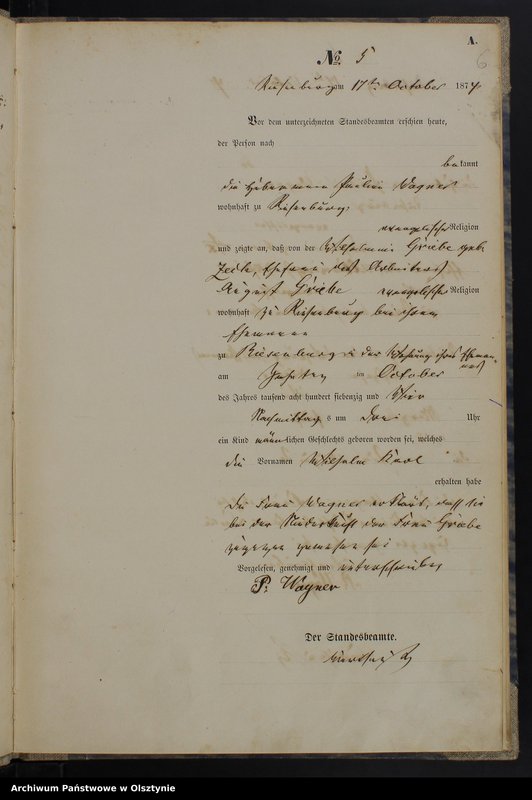 A.
6
No. 5
Riesenburg am 17ten October 1874
Vor dem unterzeichneten Standesbeamten erschien heute,
der Person nach
bekannt
die Hebamme Pauline Wagner
wohnhaft zu Riesenburg
evangelischer Religion
und zeigte an, daß von der Wilhelmine Gräbe geb.
Ehefrau des Arbeiters
August Gräbe evangelischer Religion
wohnhaft zu Riesenburg bei ihrem
Ehemanne
zu Riesenburg in der Wohnung ihres Ehemannes
am ten October
des Jahres tausend acht hundert siebenzig und vier
Nachmittags um drei Uhr
ein Kind männlichen Geschlechts geboren worden sei, welches
die Vornamen Wilhelm Karl
erhalten habe
Die Frau Wagner erklärt, daß sie
bei der Niederkunft der Frau Gräbe
zugegen gewesen sei
Vorgelesen, genehmigt und unterschrieben
P. Wagner
Der Standesbeamte.
Archiwum Państwowe w Olsztynie